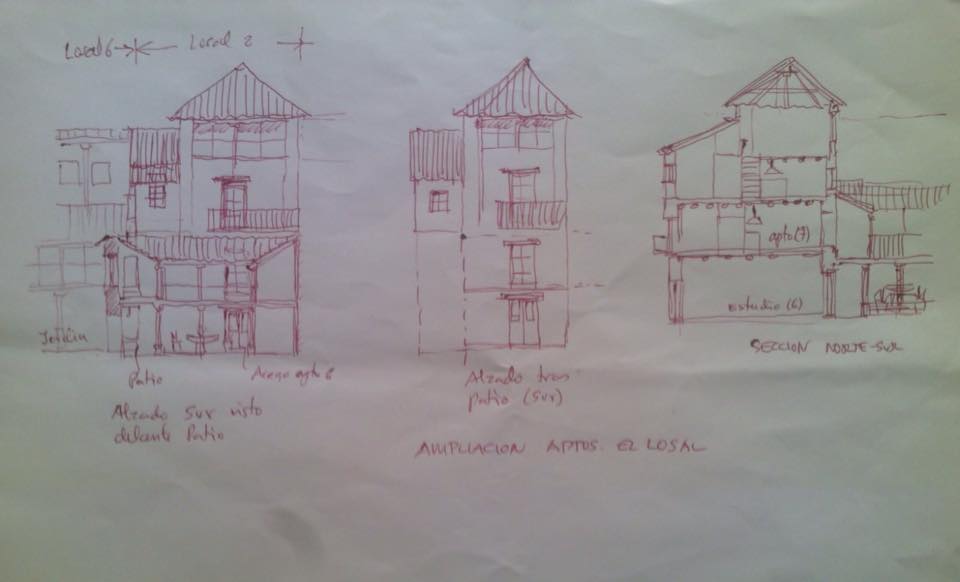 Local 6
Local 2
Patio
Acceso apto 6
Alzado Sur visto
delante Patio
Alzado tras
patio (Sur)
apto (7)
Estudio (6)
SECCION NORTE-SUR
AMPLIACION APTOS. EL LOSAL